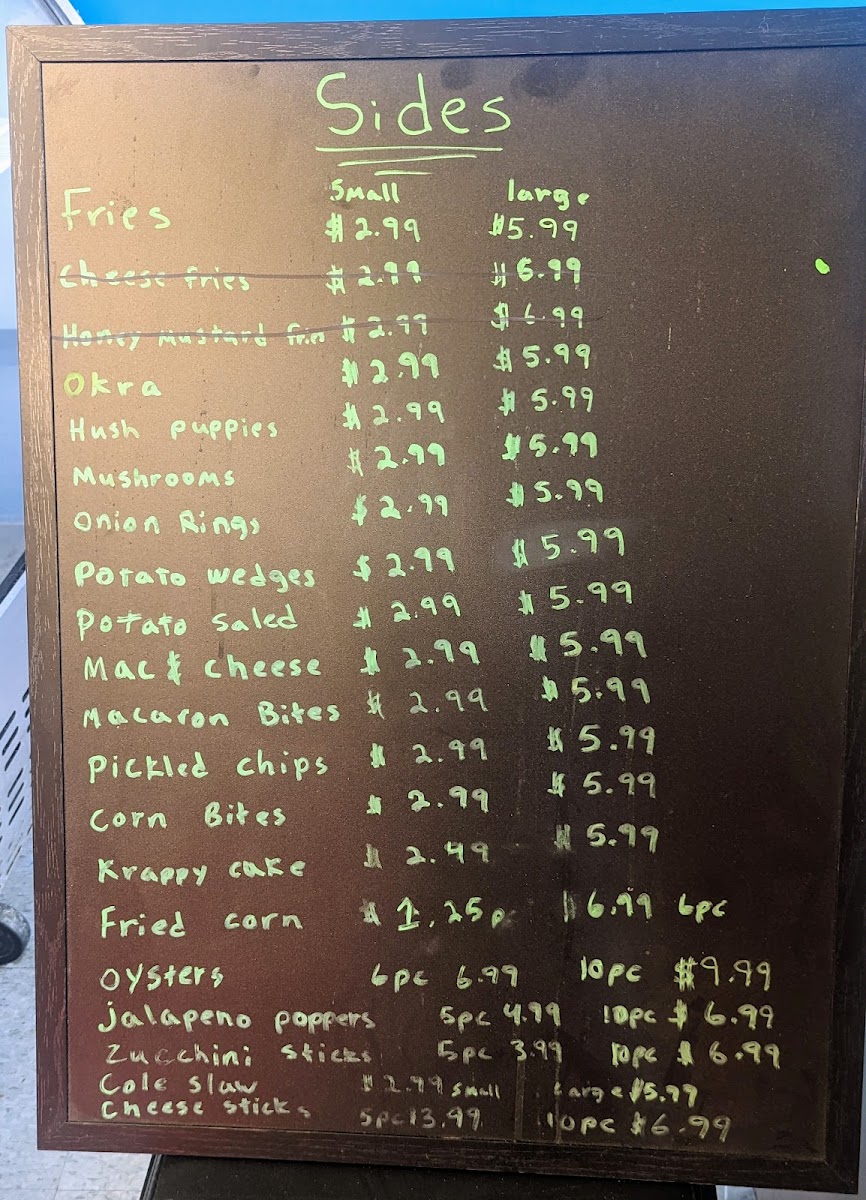 Sides
small large
Fries $2.99 $5.99
Cheese fries $2.99 $6.99
Honey Mustard fries $2.99 $6.99
Okra $2.99 $5.99
Hush puppies $2.99 $5.99
Mushrooms $2.99 $5.99
Onion Rings $2.99 $5.99
Potato wedges $2.99 $5.99
Potato saled $2.99 $5.99
Mac & cheese $2.99 $5.99
Macaron Bites $2.99 $5.99
Pickled chips $2.99 $5.99
Corn Bites $2.99 $5.99
Krappy cake $2.49 $5.99
Fried corn $1.25 pc $6.99 6pc
Oysters 6pc 6.99 10pc $9.99
jalapeno poppers 5pc 4.99 10pc $6.99
Zucchini sticks 5pc 3.99 10pc $6.99
Cole slaw $2.99 small Large $5.99
Cheese sticks 5pc 3.99 10pc $6.99